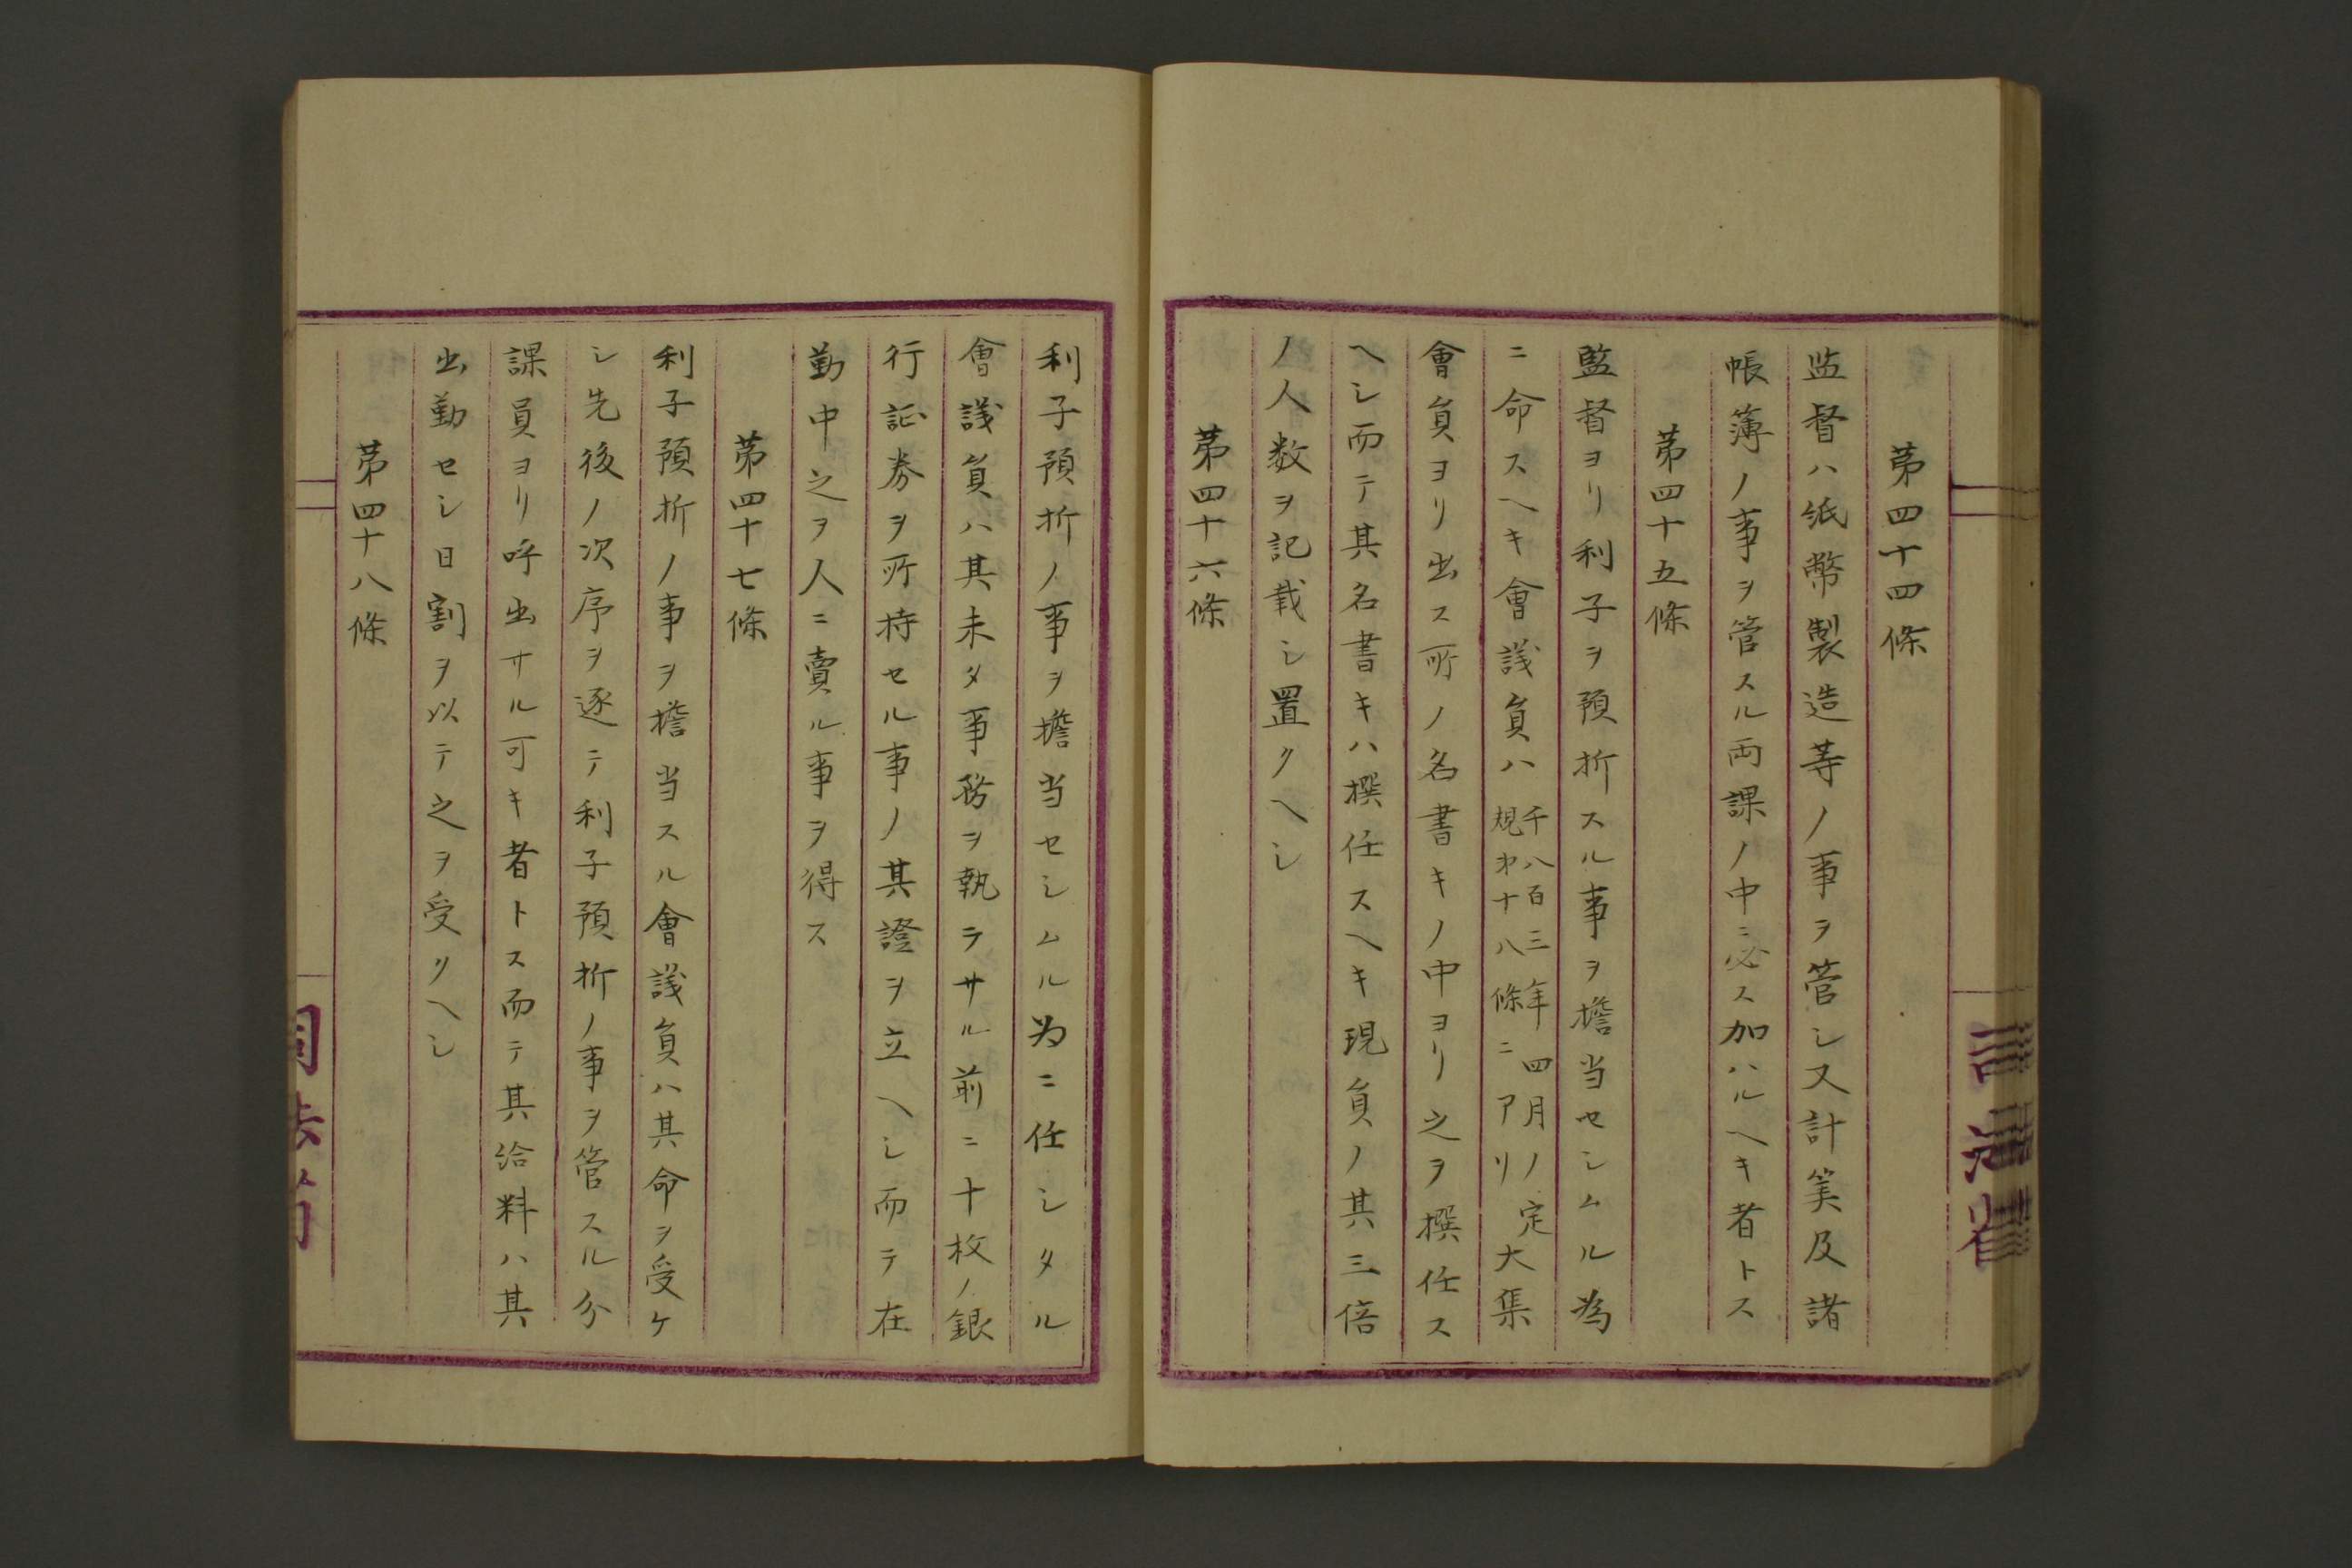 第四十四條
监督ハ紙幣製造等ノ事ヲ管シ又計筭及諸
帳簿ノ事ヲ管スル両課ノ中ニ必ス加ハルヘキ者トス
第四十五條
監督ヨリ利子ヲ預折スル事ヲ擔当セシムル為
ニ命スヘキ會議員ハ千八百三年四月ノ定規才十八條ニアリ大集
會員ヨリ出ス所ノ名書キノ中ヨリ之ヲ撰任ス
ヘシ而テ其名書キハ撰任スヘキ現員ノ其三倍
ノ人数ヲ記載シ置クヘシ
第四十六條
利子預折ノ事ヲ擔当セシムル为ニ任シタル
會議員ハ其未タ事務ヲ執ラサル前ニ十枚ノ銀
行証券ヲ所持セル事ノ其證ヲ立ヘシ而テ在
勤中之ヲ人ニ賣ル事ヲ得ス
第四十七條
利子預折ノ事ヲ擔当スル會議員ハ其命ヲ受ケ
シ先後ノ次序ヲ逐テ利子預折ノ事ヲ管スル分
課員ヨリ呼出サル可キ者トス而テ其給料ハ其
出勤セシ日割ヲ以テ之ヲ受クヘシ
第四十八條